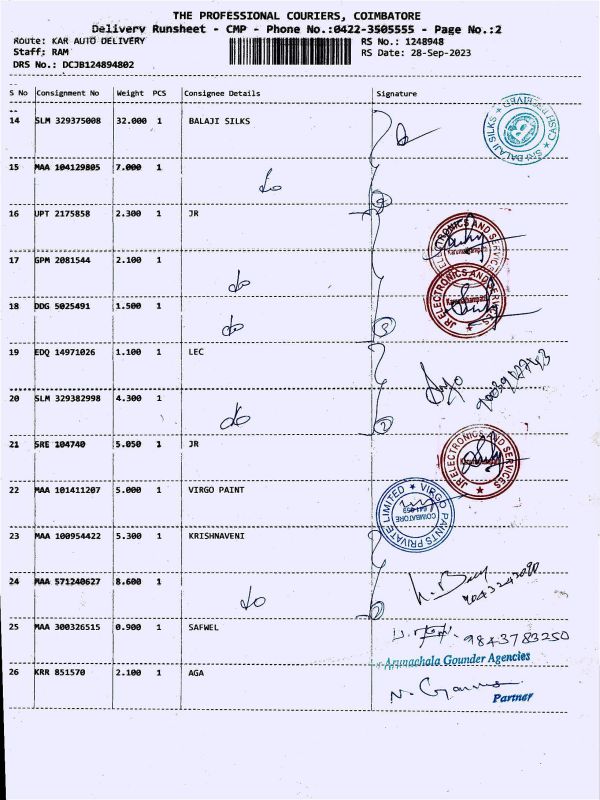 THE PROFESSIONAL COURIERS, COIMBATORE
Delivery Runsheet - CMP - Phone No.:0422-3505555 - Page No.:2
Route: KAR AUTO DELIVERY RS No.: 1248948
Staff: RAM RS Date: 28-Sep-2023
DRS No.: DCJB124894802
S No Consignment No Weight PCS Consignee Details Signature
14 SLM 329375008 32.000 1 BALAJI SILKS
SRI BALAJI SILKS ★ CASH RECEIVED ★
15 MAA 104129805 7.000 1 do
16 UPT 2175858 2.300 1 JR
JR ELECTRONICS AND SERVICES
17 GPM 2081544 2.100 1 do
18 DDG 5025491 1.500 1 do 3
JR ELECTRONICS AND SERVICES ★
19 EDQ 14971026 1.100 1 LEC
20 SLM 329382998 4.300 1 do 2
21 SRE 104740 5.050 1 JR
JR ELECTRONICS AND SERVICES ★
22 MAA 101411207 5.000 1 VIRGO PAINT
★ VIRGO PAINTS PRIVATE LIMITED COIMBATORE
23 MAA 100954422 5.300 1 KRISHNAVENI
24 MAA 571240627 8.600 1 do
25 MAA 300326515 0.900 1 SAFWEL 9843783250
Arunachala Gounder Agencies
26 KRR 851570 2.100 1 AGA
Partner